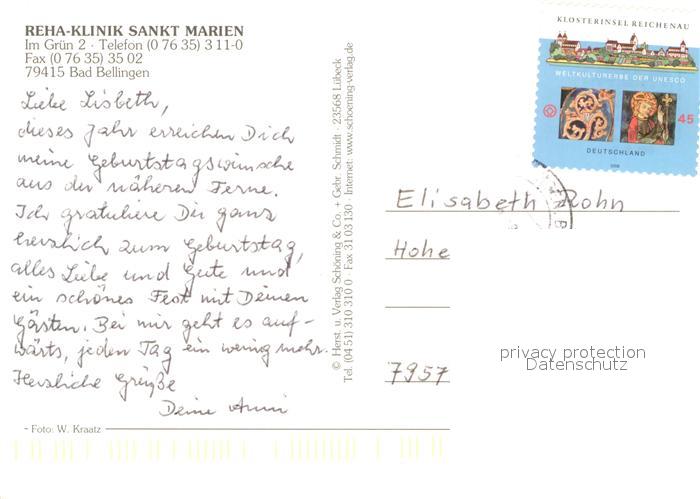 REHA-KLINIK SANKT MARIEN
Im Grün 2 · Telefon (0 76 35) 3 11-0
Fax (0 76 35) 35 02
79415 Bad Bellingen
Liebe Lisbeth,
dieses Jahr erreichen Dich
meine Geburtstagswünsche
aus der näheren Ferne.
Ich gratuliere Dir ganz
herzlich zum Geburtstag,
alles Liebe und Gute und
ein schönes Fest mit Deinen
Gästen. Bei mir geht es auf-
wärts, jeden Tag ein wenig mehr.
Herzliche Grüße
Deine Anni
Foto: W. Kraatz
© Herst. u. Verlag Schöning & Co. + Gebr. Schmidt · 23568 Lübeck
Tel. (04 51) 310 310 0 · Fax 31 03 130 · Internet: www.schoening-verlag.de
KLOSTERINSEL REICHENAU
WELTKULTURERBE DER UNESCO
45
DEUTSCHLAND
2008
Elisabeth Rohn
Hohe
7957
privacy protection
Datenschutz